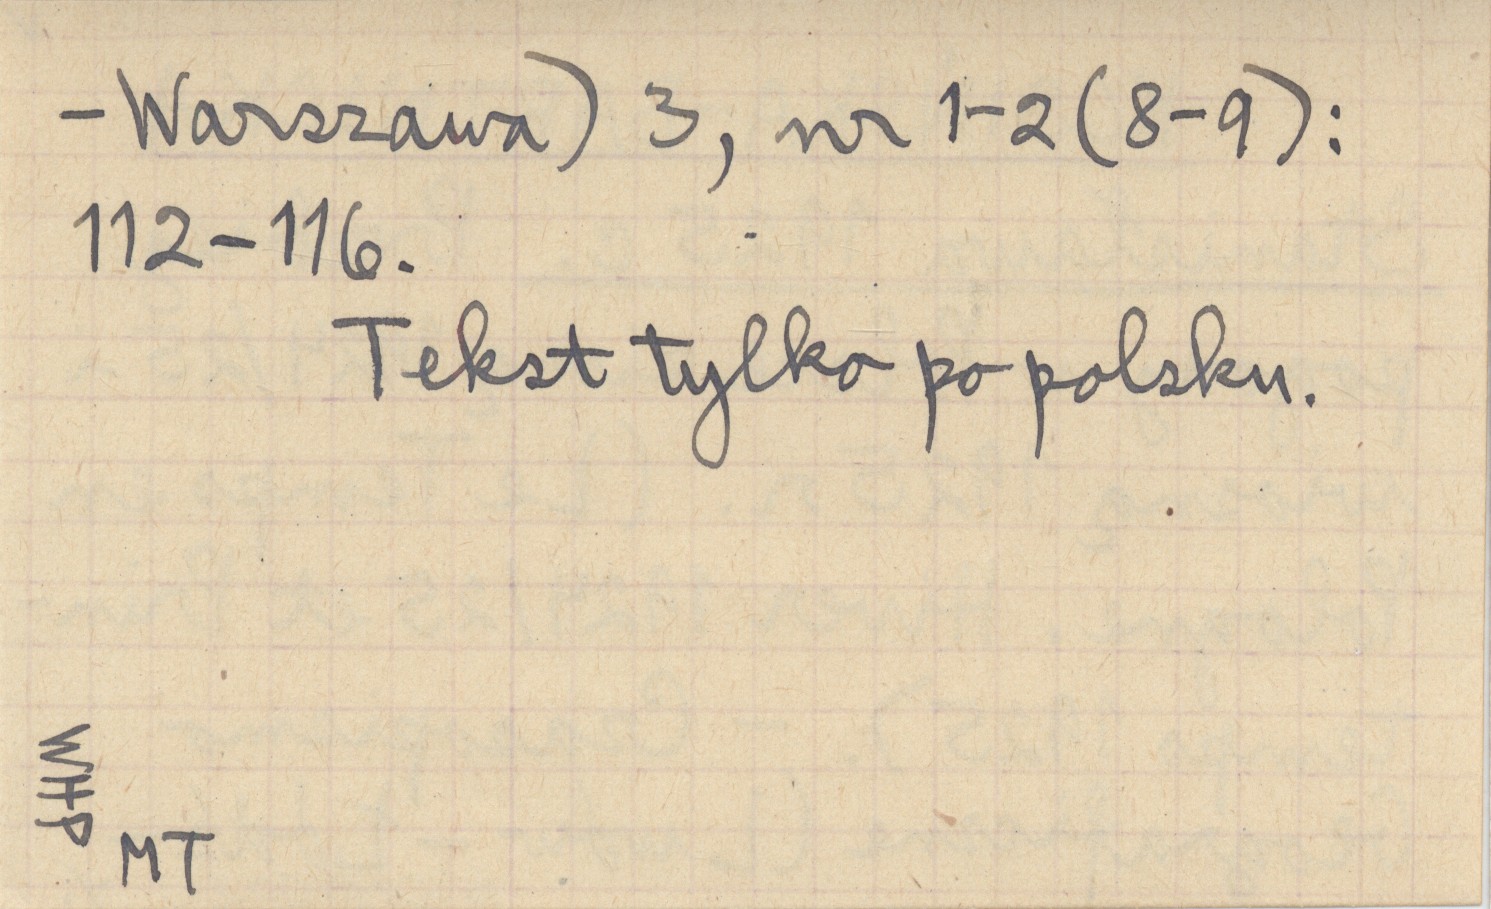 -Warszawa) 3, nr 1-2 (8-9):
112-116.
Tekst tylko po polsku.
WHP
MT